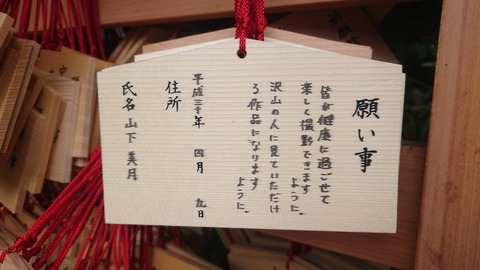 願い事
皆が健康に過ごせて
楽しく撮影できます
ように。
沢山の人に見ていただけ
る作品になります
ように。
平成三十年 四月 九日
住所
氏名 山下美月